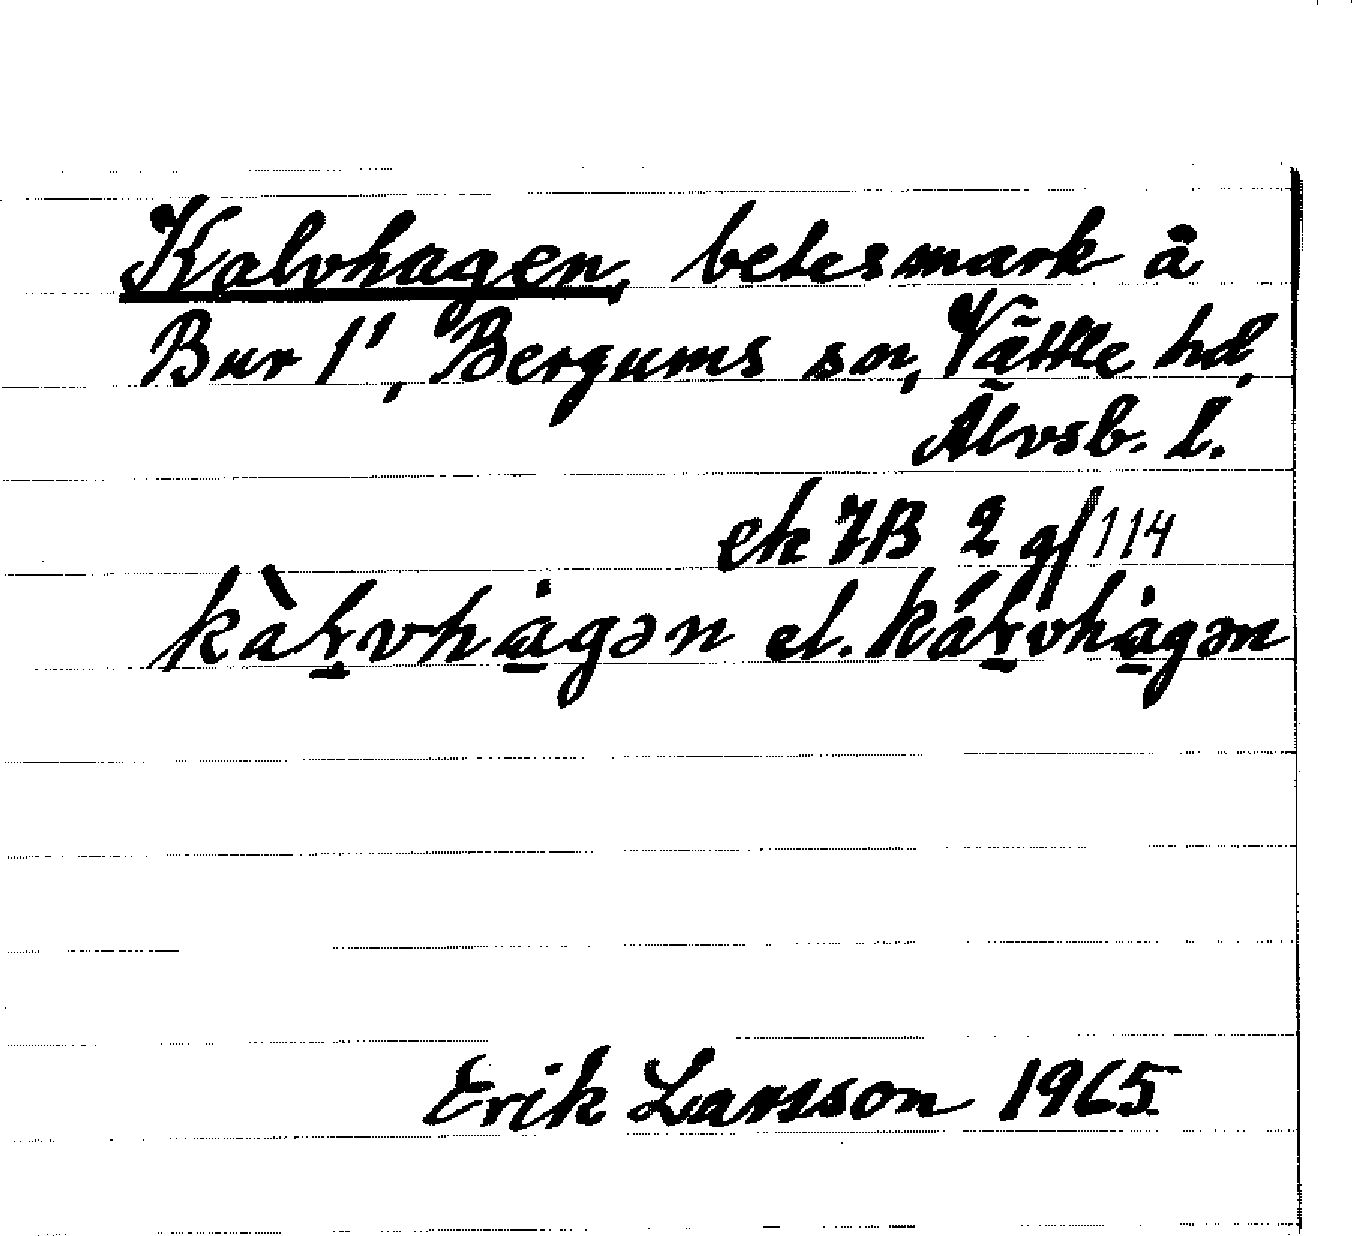 Kalvhagen, betesmark å
Bur 1¹, Bergums sn, Vättle hd,
Älvsb. l.
ek 7B 2 g/114
kàḻvhȧ̱gən el. káḻvhȧ̱gən
Erik Larsson 1965